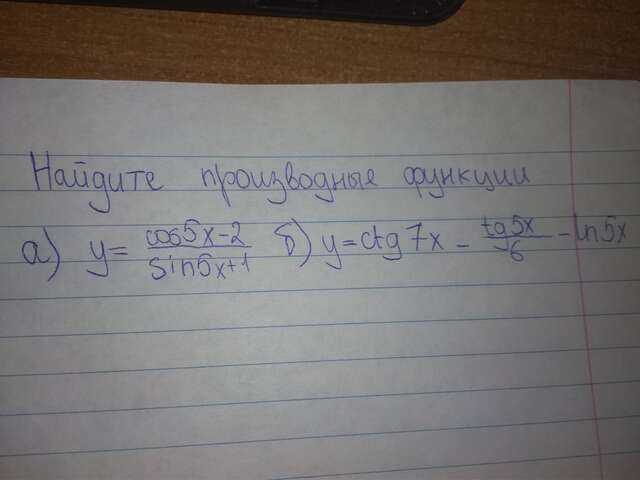 Найдите производные функции
а) y = cos5x-2 / sin5x+1 б) y = ctg7x - tg5x / 6 - ln5x